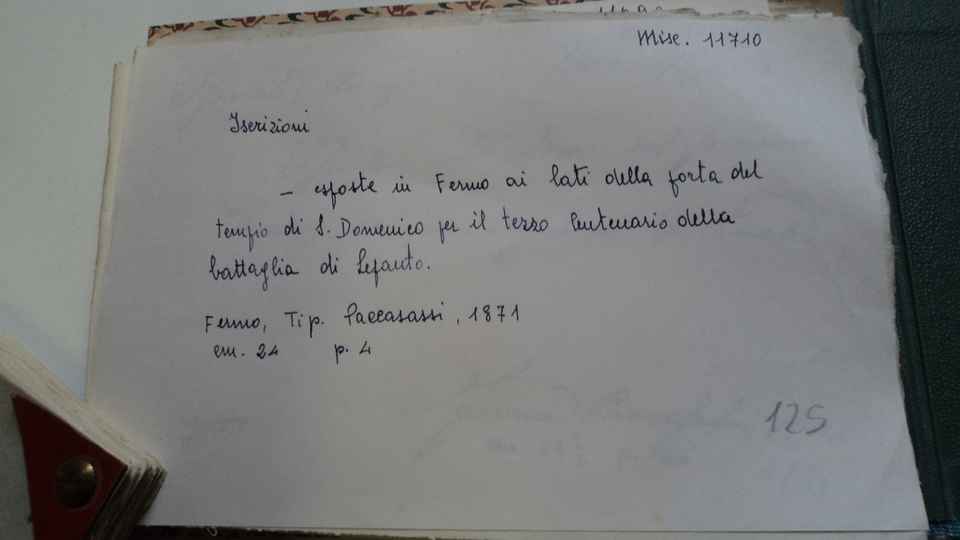 Misc. 11710
Iscrizioni
– esposte in Fermo ai lati della porta del
tempio di S. Domenico per il terzo Centenario della
battaglia di Lepanto.
Fermo, Tip. Paccasassi, 1871
cm. 24 p. 4
125